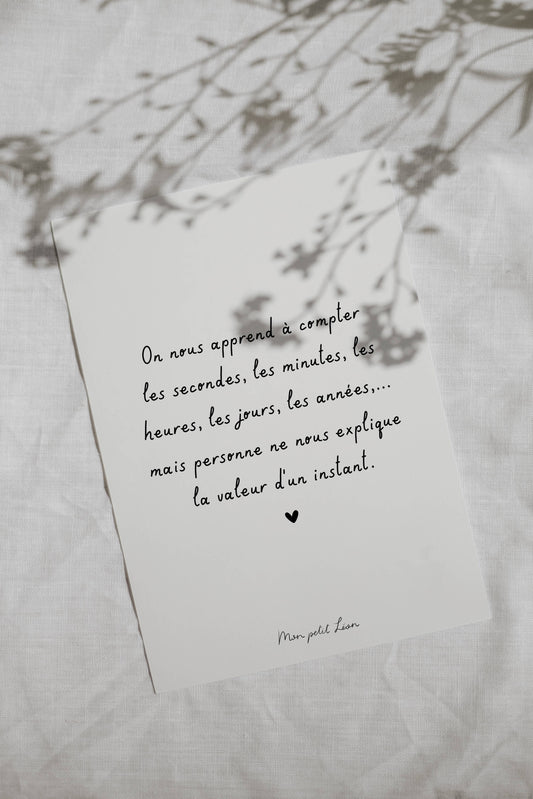 On nous apprend à compter
les secondes, les minutes, les
heures, les jours, les années,...
mais personne ne nous explique
la valeur d'un instant.
Mon petit Léon